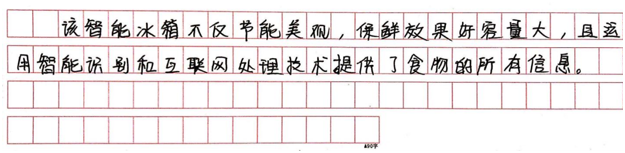 该智能冰箱不仅节能美观，保鲜效果好容量大，且运
用智能识别和互联网处理技术提供了食物的所有信息。
490字